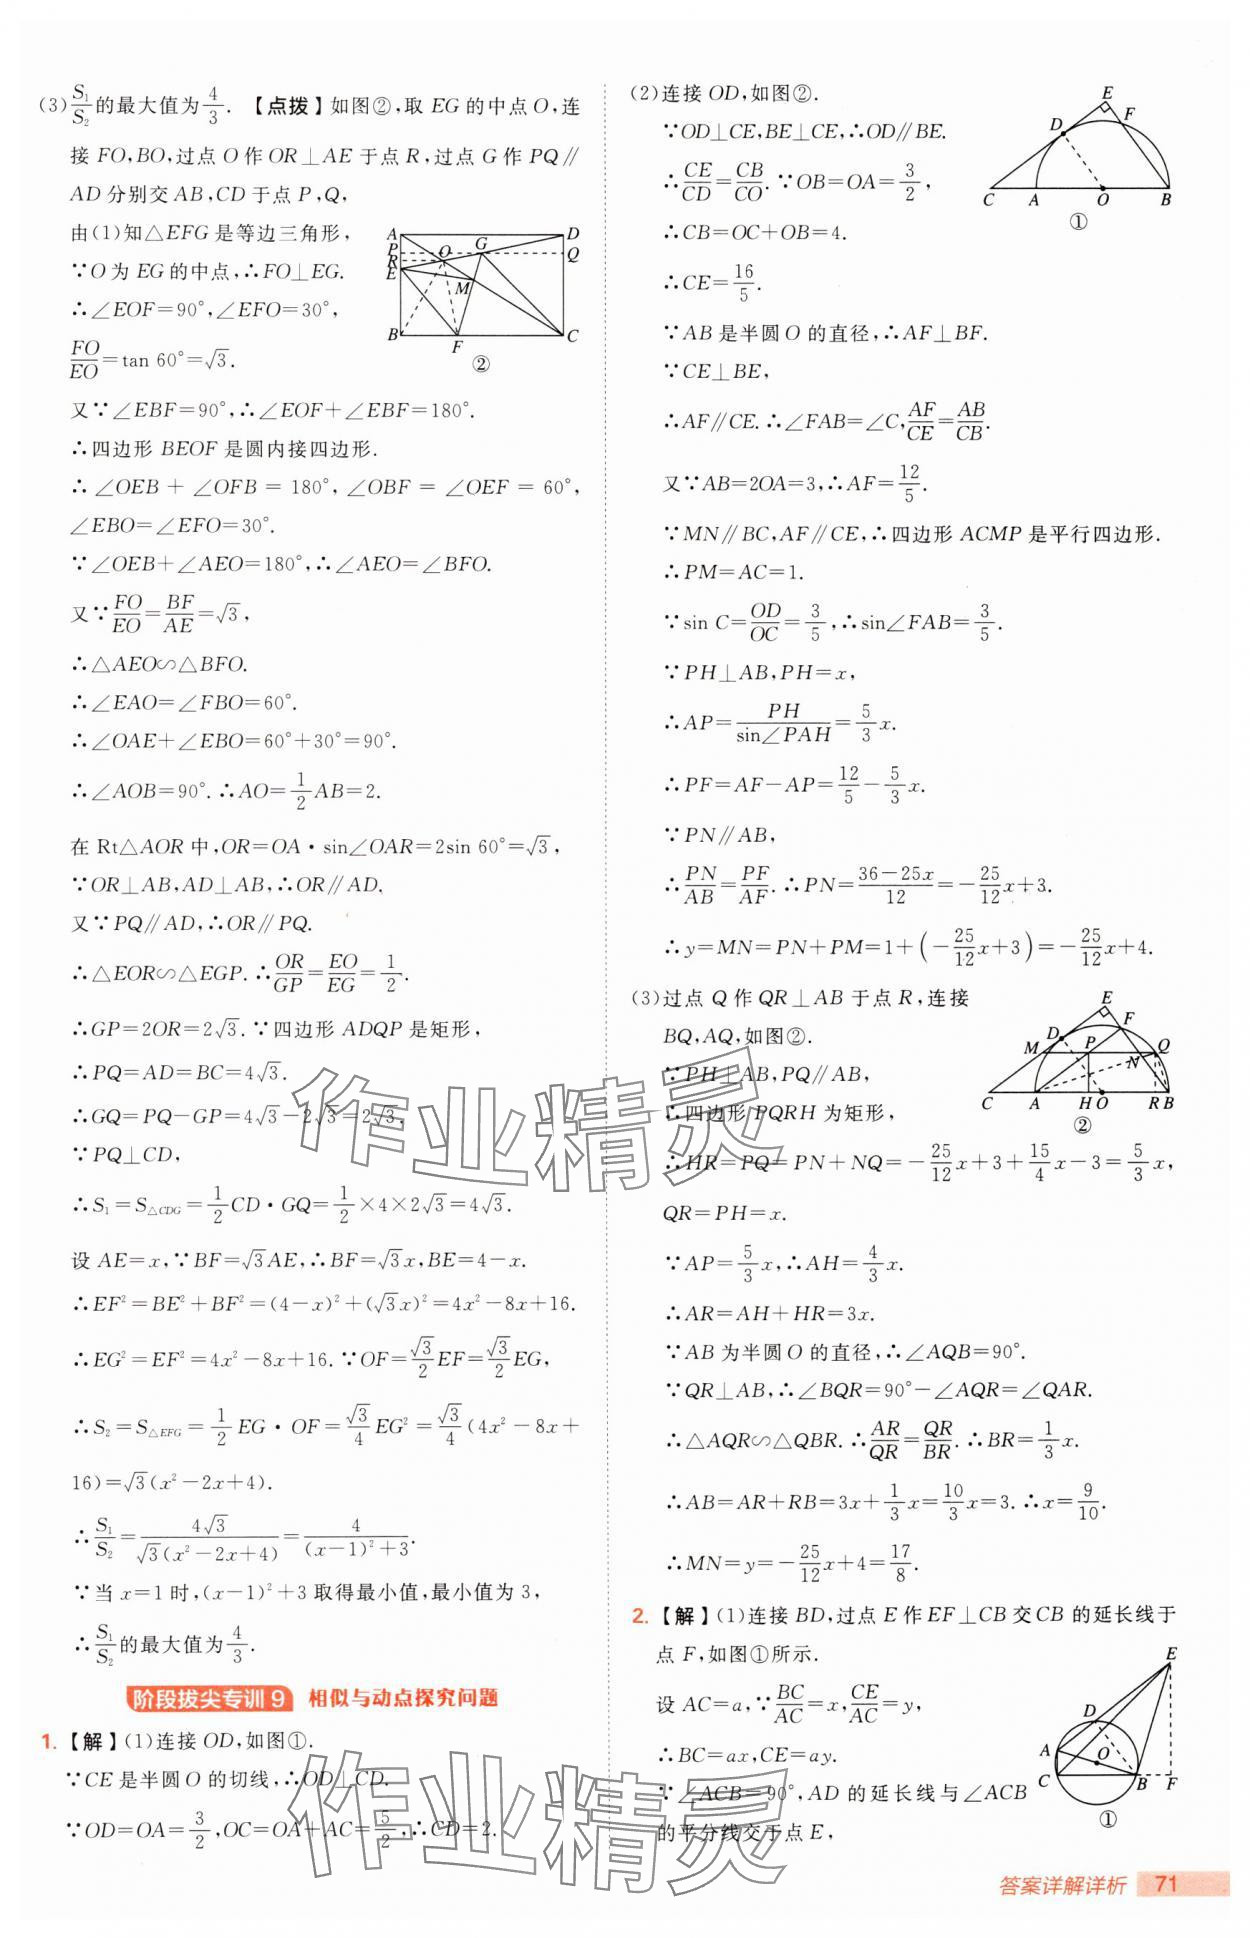 (3)S₁/S₂的最大值为4/3. 【点拨】如图②,取 EG 的中点 O,连
接 FO,BO,过点 O 作 OR⊥AE 于点 R,过点 G 作 PQ∥
AD 分别交 AB,CD 于点 P,Q,
由(1)知△EFG 是等边三角形,
∵O 为 EG 的中点,∴FO⊥EG.
∴∠EOF=90°,∠EFO=30°,
FO/EO=tan 60°=√3.
A
P
R
E
B
O
G
M
F
D
Q
C
②
又∵∠EBF=90°,∴∠EOF+∠EBF=180°.
∴四边形 BEOF 是圆内接四边形.
∴∠OEB+∠OFB=180°,∠OBF=∠OEF=60°,
∠EBO=∠EFO=30°.
∵∠OEB+∠AEO=180°,∴∠AEO=∠BFO.
又∵FO/EO=BF/AE=√3,
∴△AEO∽△BFO.
∴∠EAO=∠FBO=60°.
∴∠OAE+∠EBO=60°+30°=90°.
∴∠AOB=90°.∴AO=1/2AB=2.
在 Rt△AOR 中,OR=OA·sin∠OAR=2sin 60°=√3,
∵OR⊥AB,AD⊥AB,∴OR∥AD.
又∵PQ∥AD,∴OR∥PQ.
∴△EOR∽△EGP.∴OR/GP=EO/EG=1/2.
∴GP=2OR=2√3.∵四边形 ADQP 是矩形,
∴PQ=AD=BC=4√3.
∴GQ=PQ-GP=4√3-2√3=2√3.
∵PQ⊥CD,
∴S₁=S△CDG=1/2CD·GQ=1/2×4×2√3=4√3.
设 AE=x,∵BF=√3AE,∴BF=√3x,BE=4-x.
∴EF²=BE²+BF²=(4-x)²+(√3x)²=4x²-8x+16.
∴EG²=EF²=4x²-8x+16.∵OF=√3/2EF=√3/2EG,
∴S₂=S△EFG=1/2EG·OF=√3/4EG²=√3/4(4x²-8x+
16)=√3(x²-2x+4).
∴S₁/S₂=4√3/√3(x²-2x+4)=4/(x-1)²+3.
∵当 x=1 时,(x-1)²+3 取得最小值,最小值为 3,
∴S₁/S₂的最大值为4/3.
阶段拔尖专训 9 相似与动点探究问题
1.【解】(1)连接 OD,如图①.
∵CE 是半圆 O 的切线,∴OD⊥CD.
∵OD=OA=3/2,OC=OA+AC=5/2,∴CD=2.
(2)连接 OD,如图②.
∵OD⊥CE,BE⊥CE,∴OD∥BE.
∴CE/CD=CB/CO.∵OB=OA=3/2,
∴CB=OC+OB=4.
∴CE=16/5.
E
D
F
C
A
O
B
①
∵AB 是半圆 O 的直径,∴AF⊥BF.
∵CE⊥BE,
∴AF∥CE.∴∠FAB=∠C,AF/CE=AB/CB.
又∵AB=2OA=3,∴AF=12/5.
∵MN∥BC,AF∥CE,∴四边形 ACMP 是平行四边形.
∴PM=AC=1.
∵sin C=OD/OC=3/5,∴sin∠FAB=3/5.
∵PH⊥AB,PH=x,
∴AP=PH/sin∠PAH=5/3x.
∴PF=AF-AP=12/5-5/3x.
∵PN∥AB,
∴PN/AB=PF/AF.∴PN=36-25x/12=-25/12x+3.
∴y=MN=PN+PM=1+(-25/12x+3)=-25/12x+4.
(3)过点 Q 作 QR⊥AB 于点 R,连接
BQ,AQ,如图②.
∵PH⊥AB,PQ∥AB,
∴四边形 PQRH 为矩形,
E
D
F
M
P
N
Q
C
A
H
O
R
B
②
∴HR=PQ=PN+NQ=-25/12x+3+15/4x-3=5/3x,
QR=PH=x.
∵AP=5/3x,∴AH=4/3x.
∴AR=AH+HR=3x.
∵AB 为半圆 O 的直径,∴∠AQB=90°.
∵QR⊥AB,∴∠BQR=90°-∠AQR=∠QAR.
∴△AQR∽△QBR.∴AR/QR=QR/BR.∴BR=1/3x.
∴AB=AR+RB=3x+1/3x=10/3x=3.∴x=9/10.
∴MN=y=-25/12x+4=17/8.
2.【解】(1)连接 BD,过点 E 作 EF⊥CB 交 CB 的延长线于
点 F,如图①所示.
设 AC=a,∵BC/AC=x,CE/AC=y,
∴BC=ax,CE=ay.
∵∠ACB=90°,AD 的延长线与∠ACB
的平分线交于点 E,
E
D
A
O
C
B
F
①
作业精灵
作业精灵
答案详解详析 71